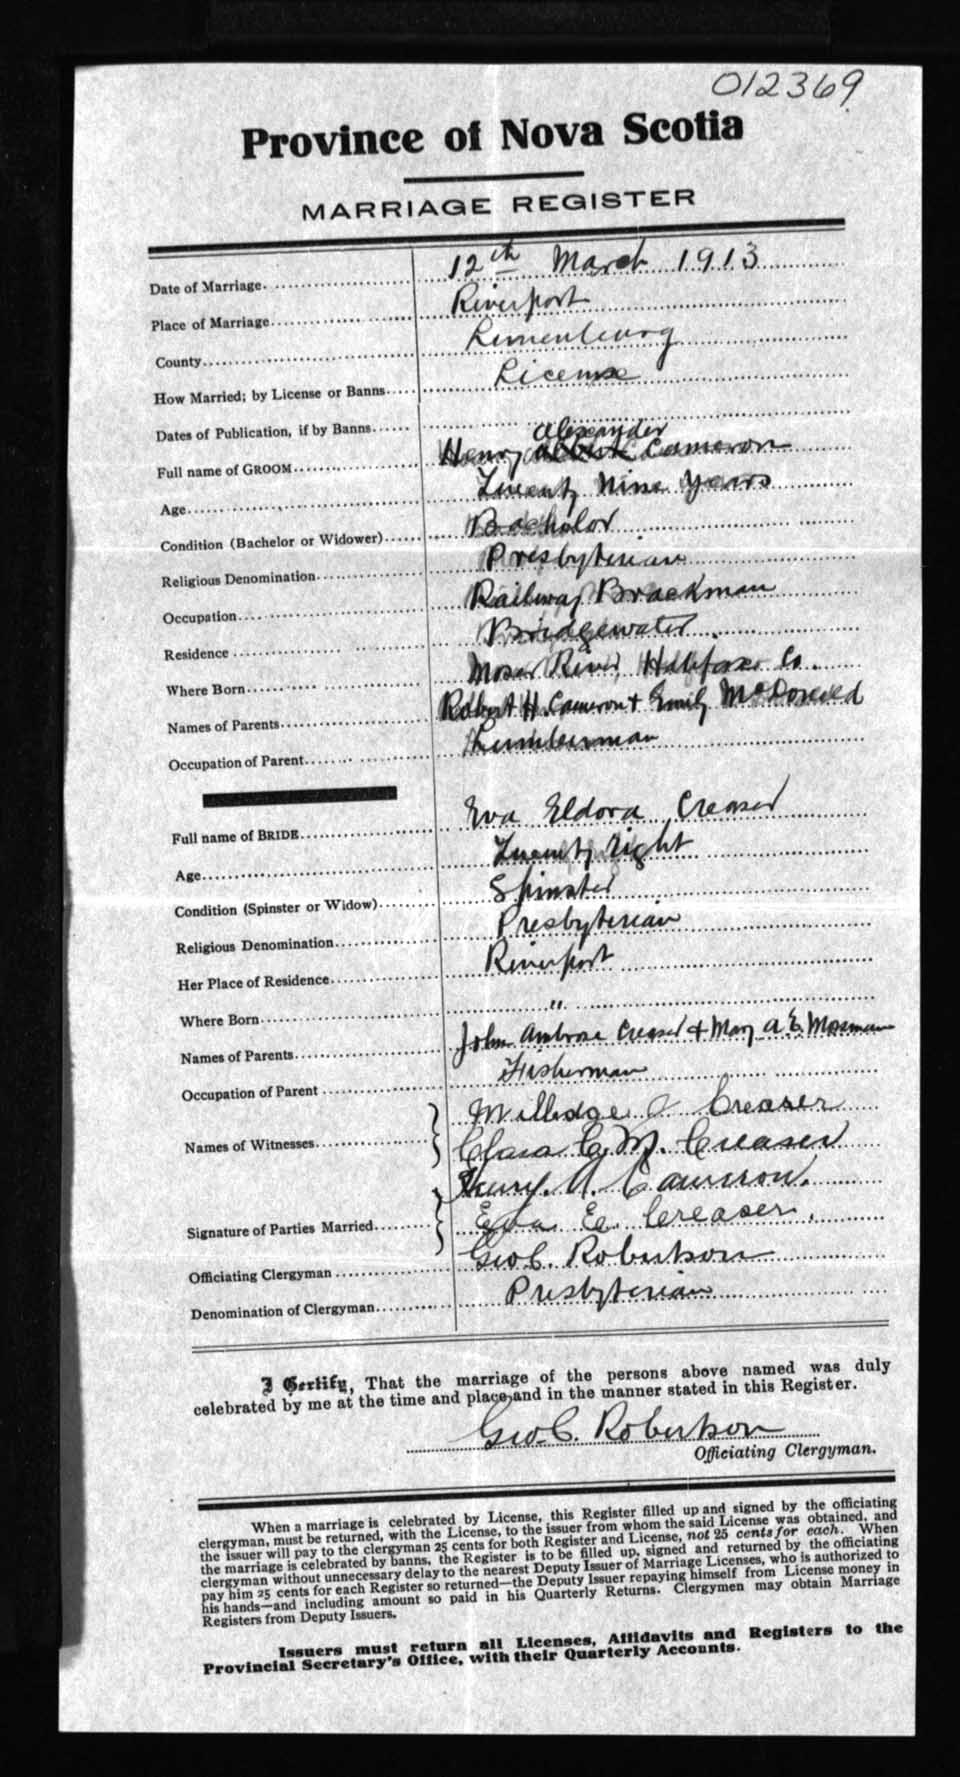 012369
Province of Nova Scotia
MARRIAGE REGISTER
Date of Marriage. 12th March 1913
Place of Marriage Riverport
County Lunenburg
How Married; by License or Banns License
Dates of Publication, if by Banns
Alexander
Full name of GROOM Henry Albert Cameron
Age Twenty Nine Years
Condition (Bachelor or Widower) Bachelor
Religious Denomination Presbyterian
Occupation Railway Brackman
Residence Bridgewater.
Where Born Moser River, Halifax Co.
Names of Parents Robert H. Cameron + Emily McDonald
Occupation of Parent Lumberman
Full name of BRIDE Eva Eldora Creaser
Age Twenty Eight
Condition (Spinster or Widow) Spinster
Religious Denomination Presbyterian
Her Place of Residence Riverport
Where Born "
Names of Parents John Ambrose Creaser + Mary A. E. Mosman
Occupation of Parent Fisherman
Names of Witnesses Milledge J Creaser
Clara C. M. Creaser
Henry. A. Cameron.
Signature of Parties Married Eva E. Creaser.
Officiating Clergyman Geo C. Robertson
Denomination of Clergyman Presbyterian
I Certify, That the marriage of the persons above named was duly
celebrated by me at the time and place and in the manner stated in this Register.
Geo. C. Robertson
Officiating Clergyman.
When a marriage is celebrated by License, this Register filled up and signed by the officiating
clergyman, must be returned, with the License, to the issuer from whom the said License was obtained, and
the issuer will pay to the clergyman 25 cents for both Register and License, not 25 cents for each. When
the marriage is celebrated by banns, the Register is to be filled up, signed and returned by the officiating
clergyman without unnecessary delay to the nearest Deputy Issuer of Marriage Licenses, who is authorized to
pay him 25 cents for each Register so returned—the Deputy Issuer repaying himself from License money in
his hands—and including amount so paid in his Quarterly Returns. Clergymen may obtain Marriage
Registers from Deputy Issuers.
Issuers must return all Licenses, Affidavits and Registers to the
Provincial Secretary's Office, with their Quarterly Accounts.